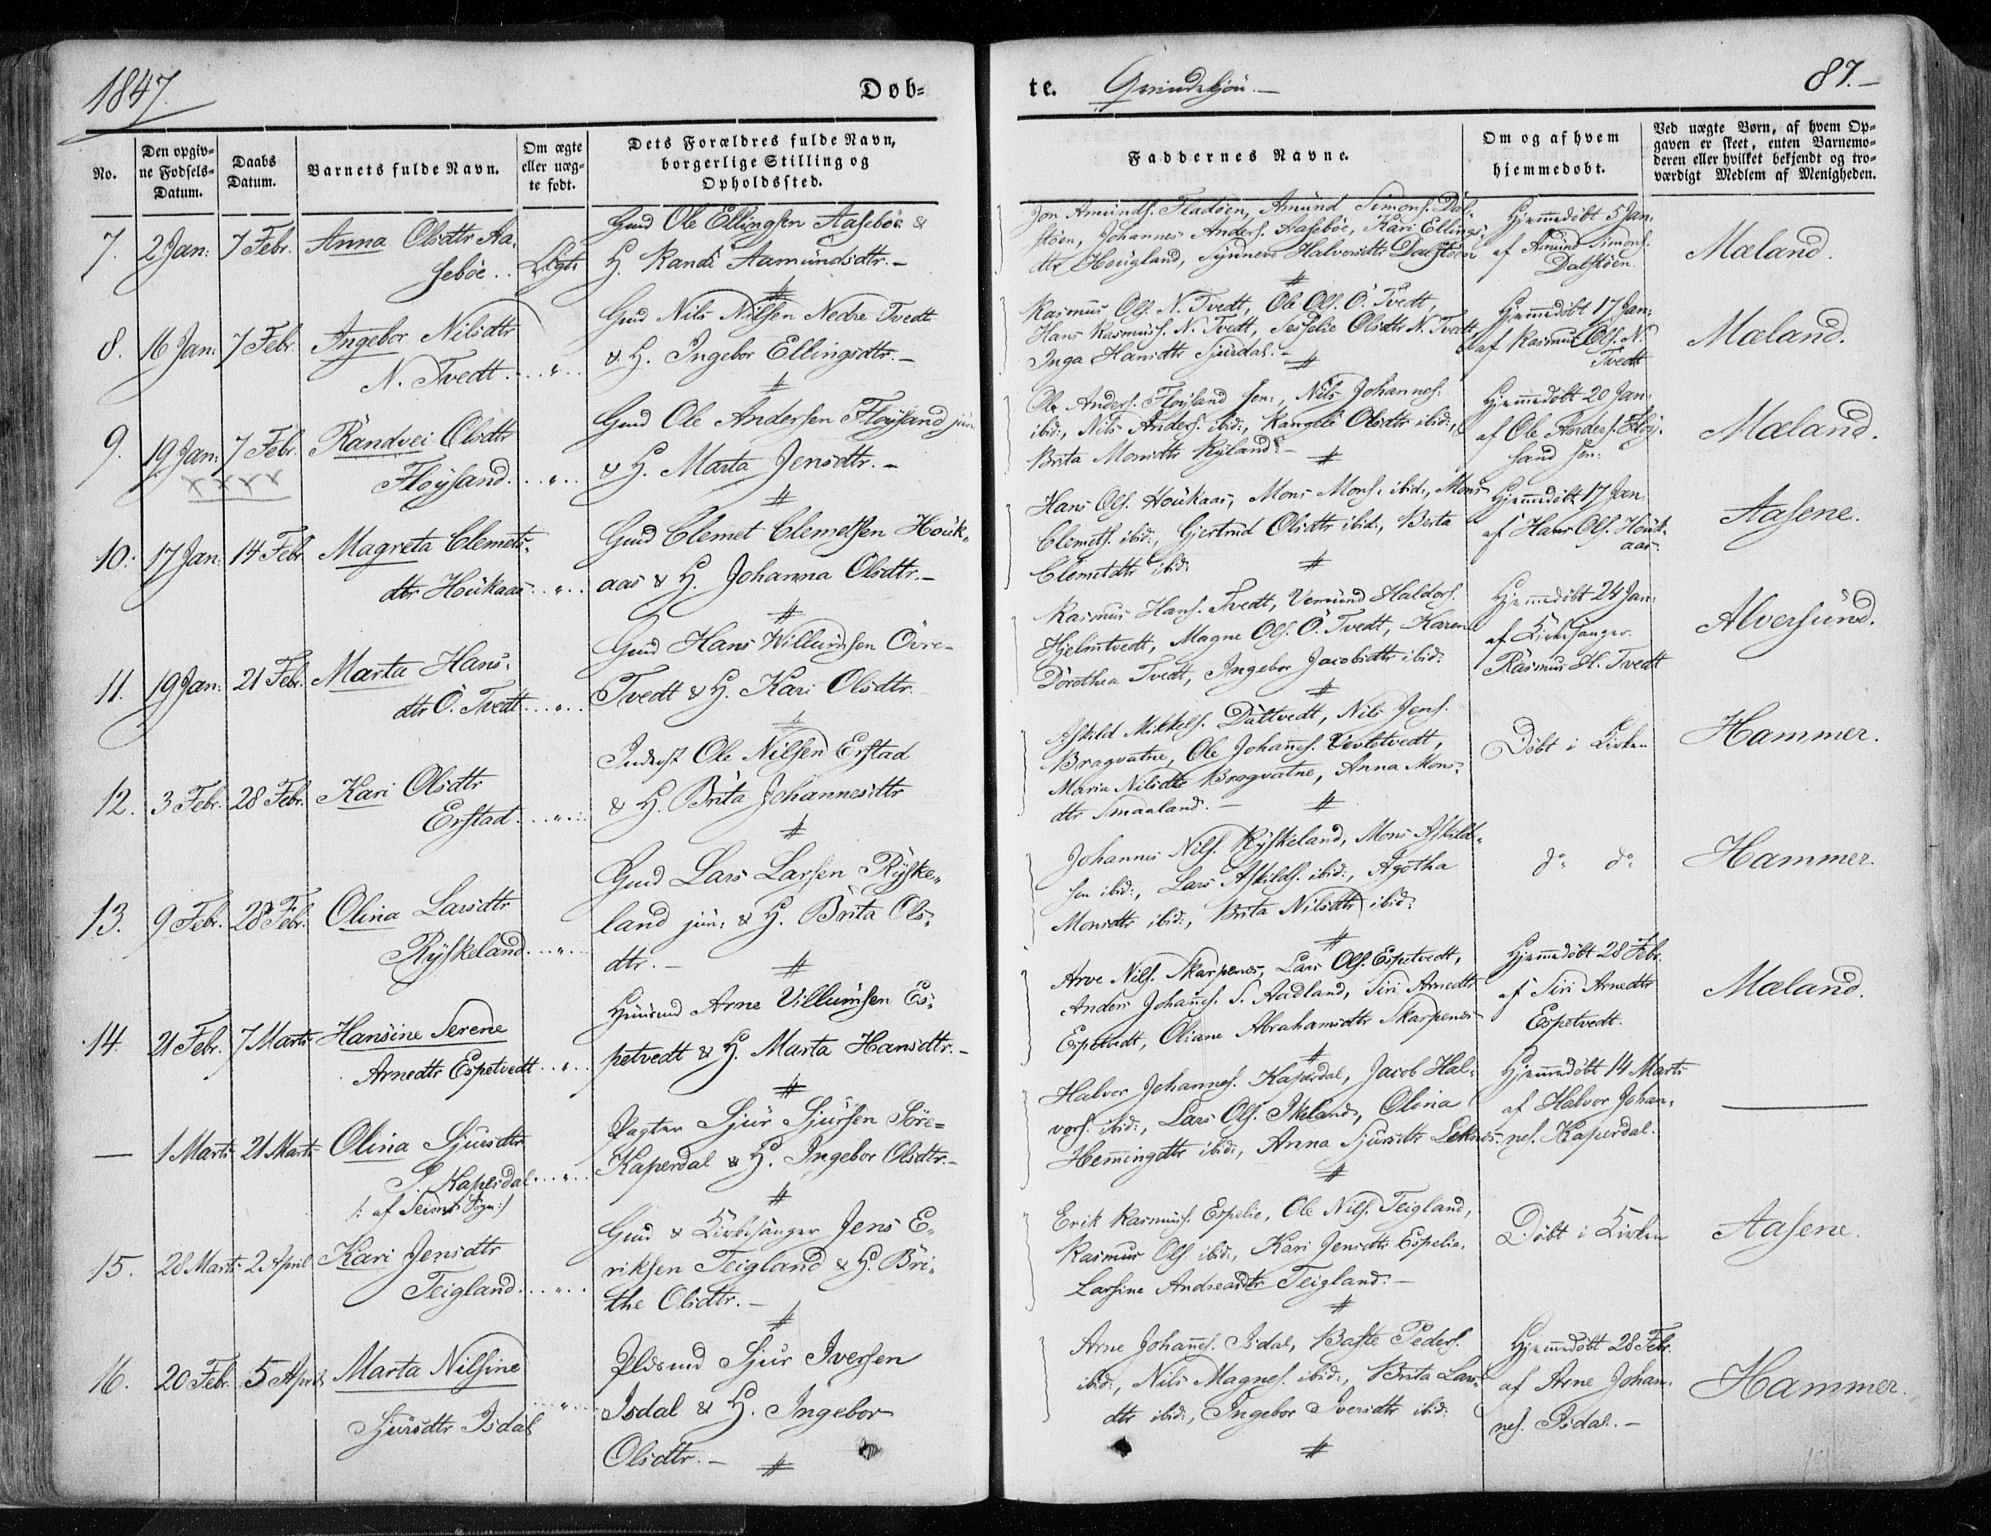 1847.
Døb=
te. Qvindekjön.
87.
No.
Den opgiv=
ne Fødsels=
Datum.
Daabs
Datum.
Barnets fulde Navn.
Om ægte
eller uæg=
te født.
Dets Forældres fulde Navn,
borgerlige Stilling og
Opholdssted.
Faddernes Navne.
Om og af hvem
hjemmedøbt.
Ved uægte Børn, af hvem Op=
gaven er skeet, enten Barnemo=
deren eller hvilket bekjendt og tro=
værdigt Medlem af Menigheden.
7. 2 Jan: 7 Febr. Anna Olsdtr Aa-
seböe
Gmd Ole Ellingsen Aaseböe &
H. Randi Aamundsdtr.
Jon Amunds. Fladöen, Amund Simons. Dal-
stöen, Johannes Anders. Aaseböe, Kari Ellings-
dtr Hougland, Synneve Halvorsdtr Dalstöen
Hjemmedöbt 5 Jan:
af Amund Simons.
Dalstöen.
Mæland.
8. 16 Jan: 7 Febr. Angebor Nilsdtr
N. Tvedt. "
Gmd Nils Nilsen Nedre Tvedt
& H. Ingebor Ellingsdtr.
Rasmus Ols. N. Tvedt, Ole Ols. Ö. Tvedt,
Hans Rasmuss. N. Tvedt, Olsdtr N. Tvedt
Inga Hansdtr Sjurdal.
Hjemmedöbt 17 Jan:
af Rasmus Ols. N.
Tvedt
Mæland.
9. 19 Jan: 7 Febr. Randvei Olsdtr
Flöysand. "
Gmd Ole Andersen Flöysand jun
& H. Marta Jensdtr.
Ole Anders. Flöysand sen:, Nils Johannes.
ibid:, Nils Anders. ibid:, Rangele Olsdtr ibid:,
Brita Monsdtr Ryland.
Hjemmedöbt 20 Jan:
af Ole Anders. Flöy-
sand sen:
Mæland.
10. 17 Jan: 14 Febr. Magreta Clemets-
dtr Houkaas "
Gmd Clemet Clemetsen Houk-
aas & H. Johanna Olsdtr.
Hans Ols. Houkaas, Mons Mons. ibid:, Mons
Clemets. ibid:, Gjertrud Olsdtr ibid:, Berta
Clemetdtr ibid:
Hjemmedöbt 17 Jan.
af Hans Ols. Houk-
aas.
Aasene.
11. 19 Jan: 21 Febr. Marta Hans-
dtr Ö. Tvedt "
Gmd Hans Willumsen Övre-
Tvedt & H. Kari Olsdtr.
Rasmus Hans. Tvedt, Vemund Haldors.
Hjelmtvedt, Magne Ols. Ö. Tvedt, Karen
Dorothea Tvedt, Ingebor Jacobsdtr ibid:
Hjemmedöbt 24 Jan:
af Kirkesanger
Rasmus H. Tvedt
Alversund.
12. 3 Febr. 28 Febr. Kari Olsdtr
Erstad. "
Inderst Ole Nilsen Erstad
& H. Brita Johannesdtr
Askild Mikkels. Dattvedt, Nils Jens.
Bragvatne, Ole Johannes.
Maria Nilsdtr Bragvatne, Anna Mons-
dtr Smaaland.
Döbt i Kirken
Hammer.
13. 9 Febr. 28 Febr. Olina Larsdtr
Ryskeland. "
Gmd Lars Larsen Ryske-
land jun: & H. Brita Ols-
dtr.
Johannes Nils. Ryskeland, Mons Askild-
sen ibid:, Lars Askilds. ibid:, Agotha
Monsdtr ibid:, Brita Nilsdtr ibid:
do do
Hammer.
14. 21 Febr. 7 Marts Hansine Serene
Arnedtr Espetvedt "
Huusmd Arne Villumsen Es-
petvedt & H. Marta Hansdtr.
Arve Nils. Skarpenes, Lars Ols. Espetvedt,
Anders Johannes. S. Aadland, Siri Arnedtr
Espetvedt, Oliane Abrahamsdtr Skarpenes
Hjemmedöbt 28 Febr.
af Siri Arnedtr
Espetvedt.
Mæland.
— 1 Marts 21 Marts Olina Sjursdtr
S. Kaperdal "
/: af Seims Sogn :/
Pagter Sjur Sjursen Söre-
Kaperdal & H. Ingebor Olsdtr.
Halvor Johannes. Kaperdal, Jacob Hal-
vors. ibid:, Lars Ols. Ikeland, Olina
Hemmingdtr ibid:, Anna Sjursdtr Leknes.
Hjemmedöbt 14 Marts
af Halvor Johan-
nes. Kaperdal.
15. 28 Marts 2 April Kari Jensdtr
Teigland "
Gmd & Kirkesanger Jens E-
riksen Teigland & H. Bri-
the Olsdtr.
Erik Rasmus. Espelie, Ole Nils. Teigland,
Rasmus Ols. ibid:, Kari Jensdtr Espelie,
Larsine Andreasdtr Teigland.
Döbt i Kirken
Aasene.
16. 20 Febr. 5 April Marta Nilsine
Sjursdtr Isdal "
Pldsmd Sjur Iversen
Isdal & H. Ingebor
Olsdtr.
Arne Johannes. Isdal, Baste Peders.
ibid:, Nils Magnes. ibid:, Brita Lars-
dtr ibid:, Ingebor Iversdtr ibid:
Hjemmedöbt 28 Febr.
af Arne Johan-
nes. Isdal.
Hammer.